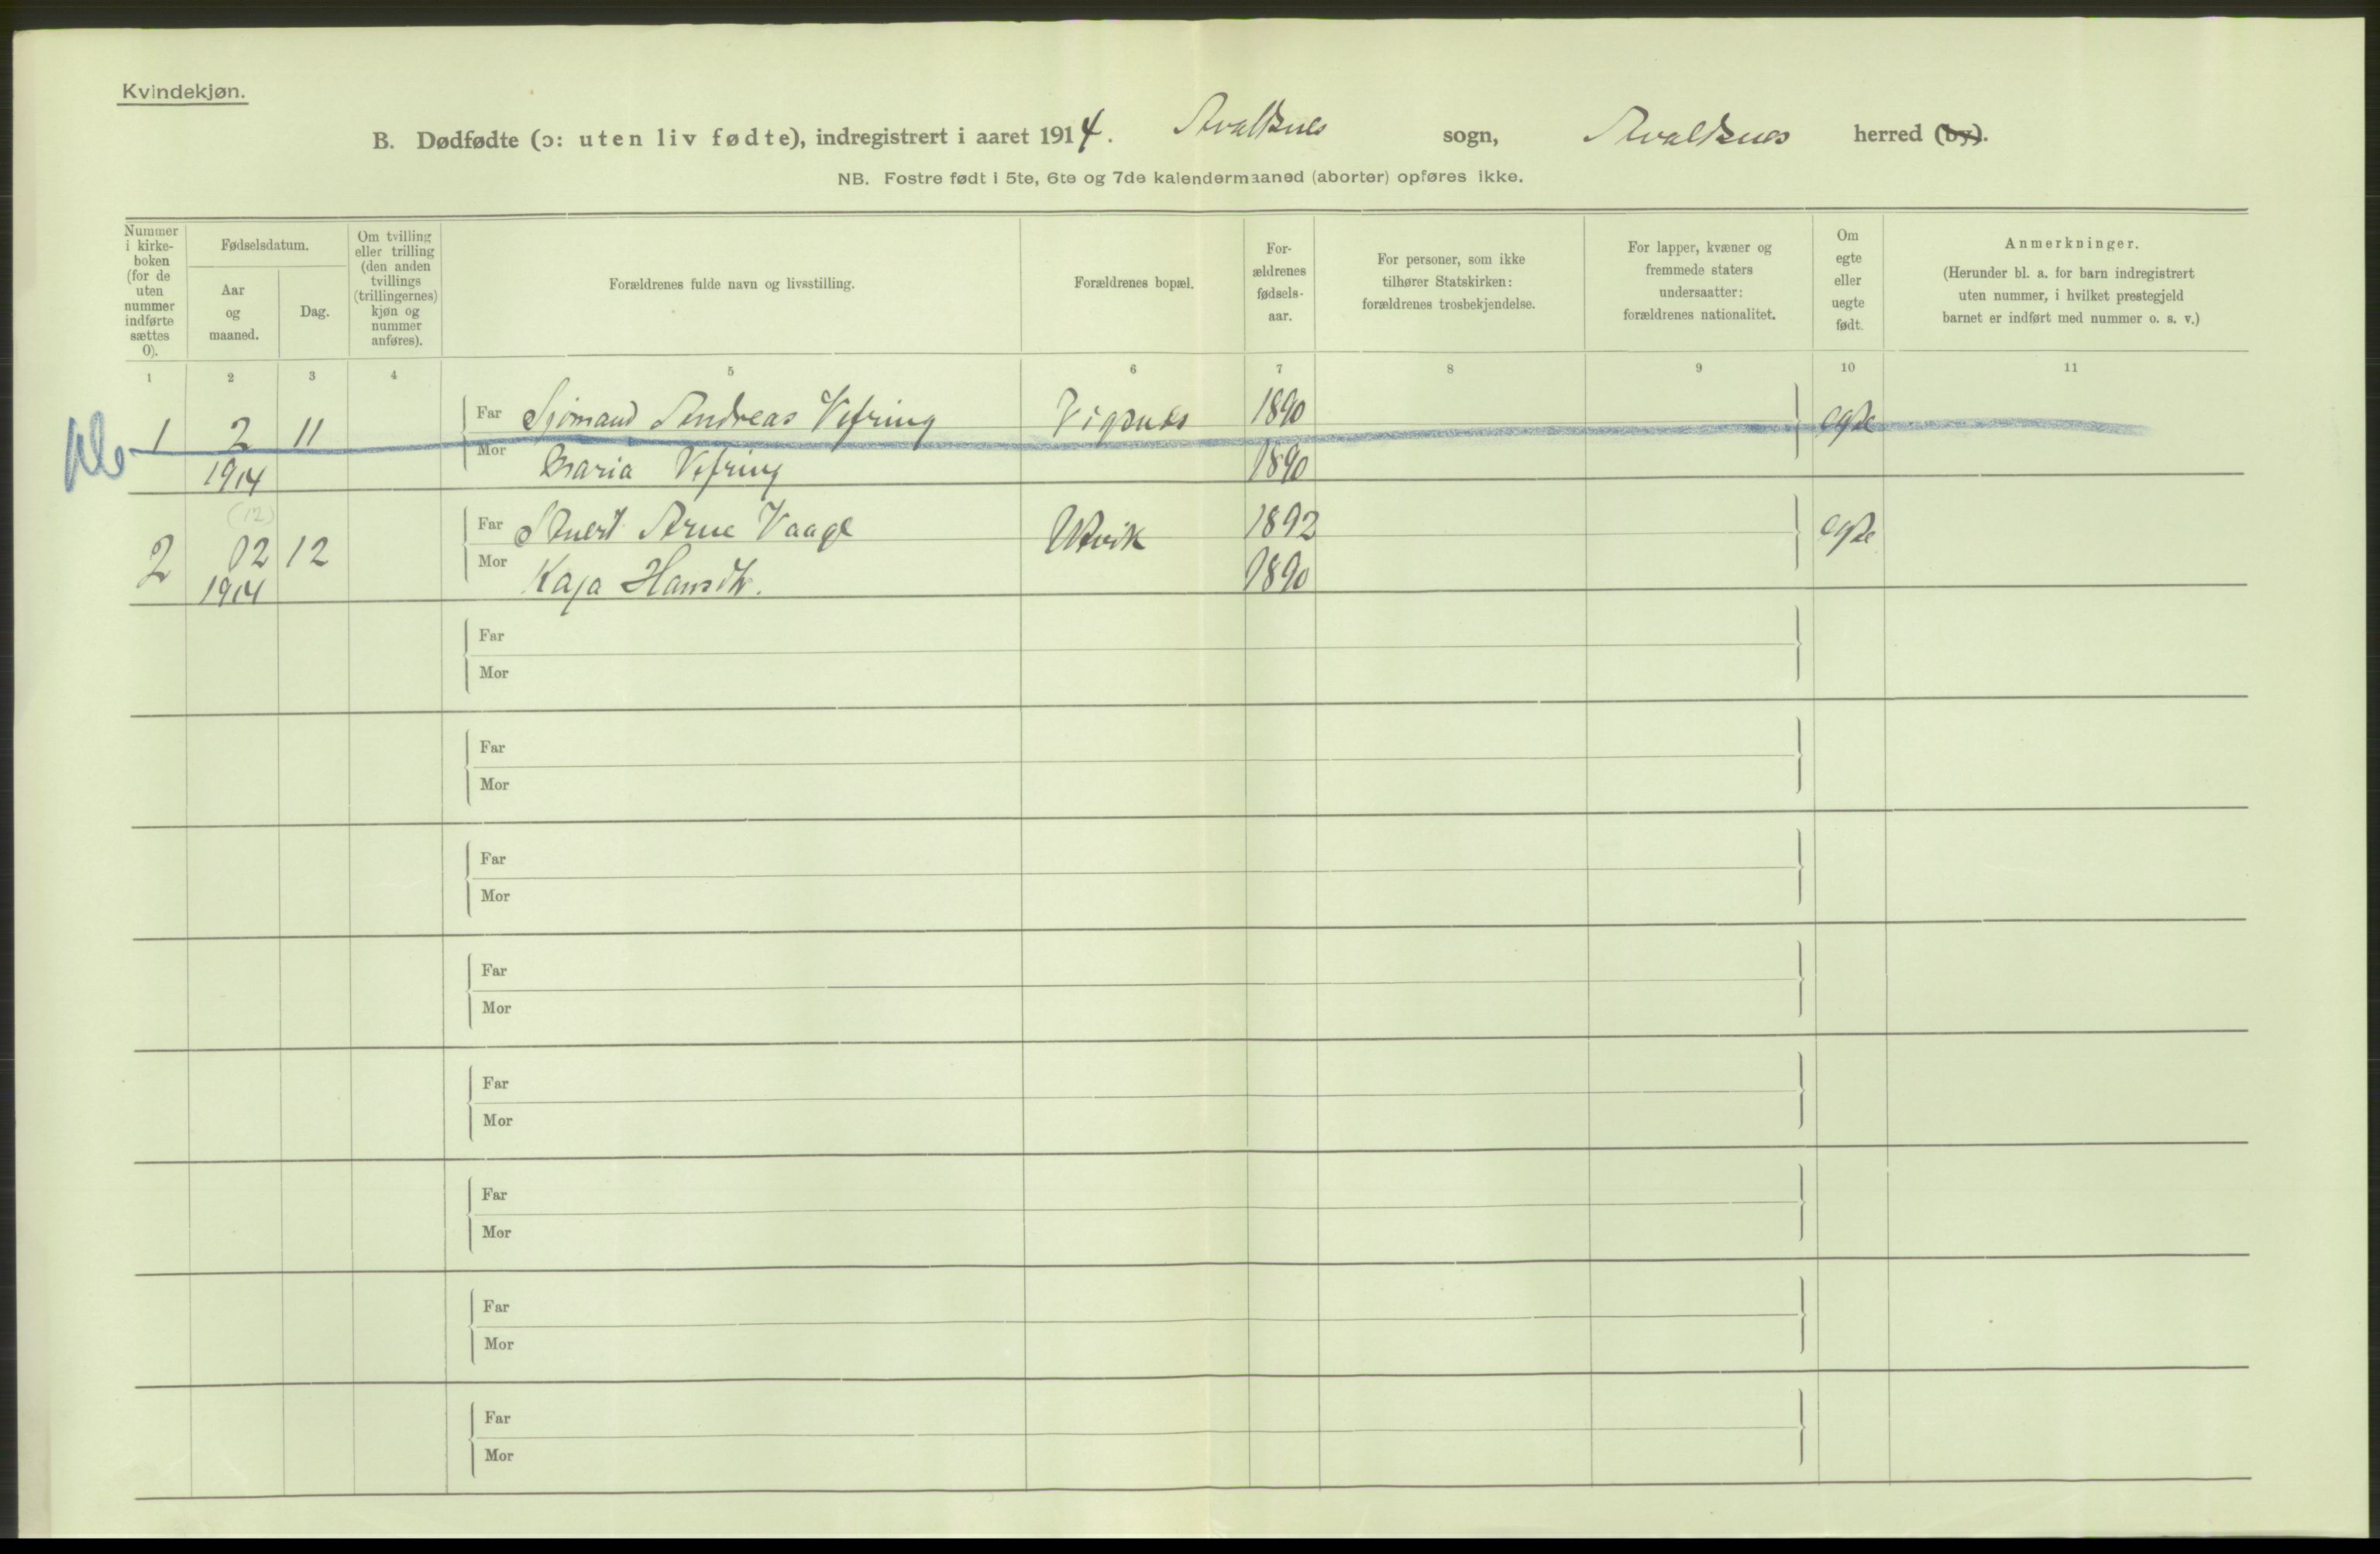 Kvindekjøn.
B. Dødfødte (ɔ: uten liv fødte), indregistrert i aaret 1914. Avaldsnes sogn, Avaldsnes herred (by).
NB. Fostre født i 5te, 6te og 7de kalendermaaned (aborter) opføres ikke.
Nummer
i kirke-
boken
(for de
uten
nummer
indførte
sættes
0).
Fødselsdatum.
Aar
og
maaned.
Dag.
Om tvilling
eller trilling
(den anden
tvillings
(trillingernes)
kjøn og
nummer
anføres).
Forældrenes fulde navn og livsstilling.
Forældrenes bopæl.
For-
ældrenes
fødsels-
aar.
For personer, som ikke
tilhører Statskirken:
forældrenes trosbekjendelse.
For lapper, kvæner og
fremmede staters
undersaatter:
forældrenes nationalitet.
Om
egte
eller
uegte
født.
Anmerkninger.
(Herunder bl. a. for barn indregistrert
uten nummer, i hvilket prestegjeld
barnet er indført med nummer o. s. v.)
1 2 3 4 5 6 7 8 9 10 11
1 2 11 Far Sjömand Andreas Vefring Vigsnes 1890 egte
1914 Mor Maria Vefring 1890
(12)
2 12 12 Far Arne Vaage Utvik 1892 egte
1914 Mor Kaja Hansdtr. 1890
Far
Mor
Far
Mor
Far
Mor
Far
Mor
Far
Mor
Far
Mor
Far
Mor
Far
Mor